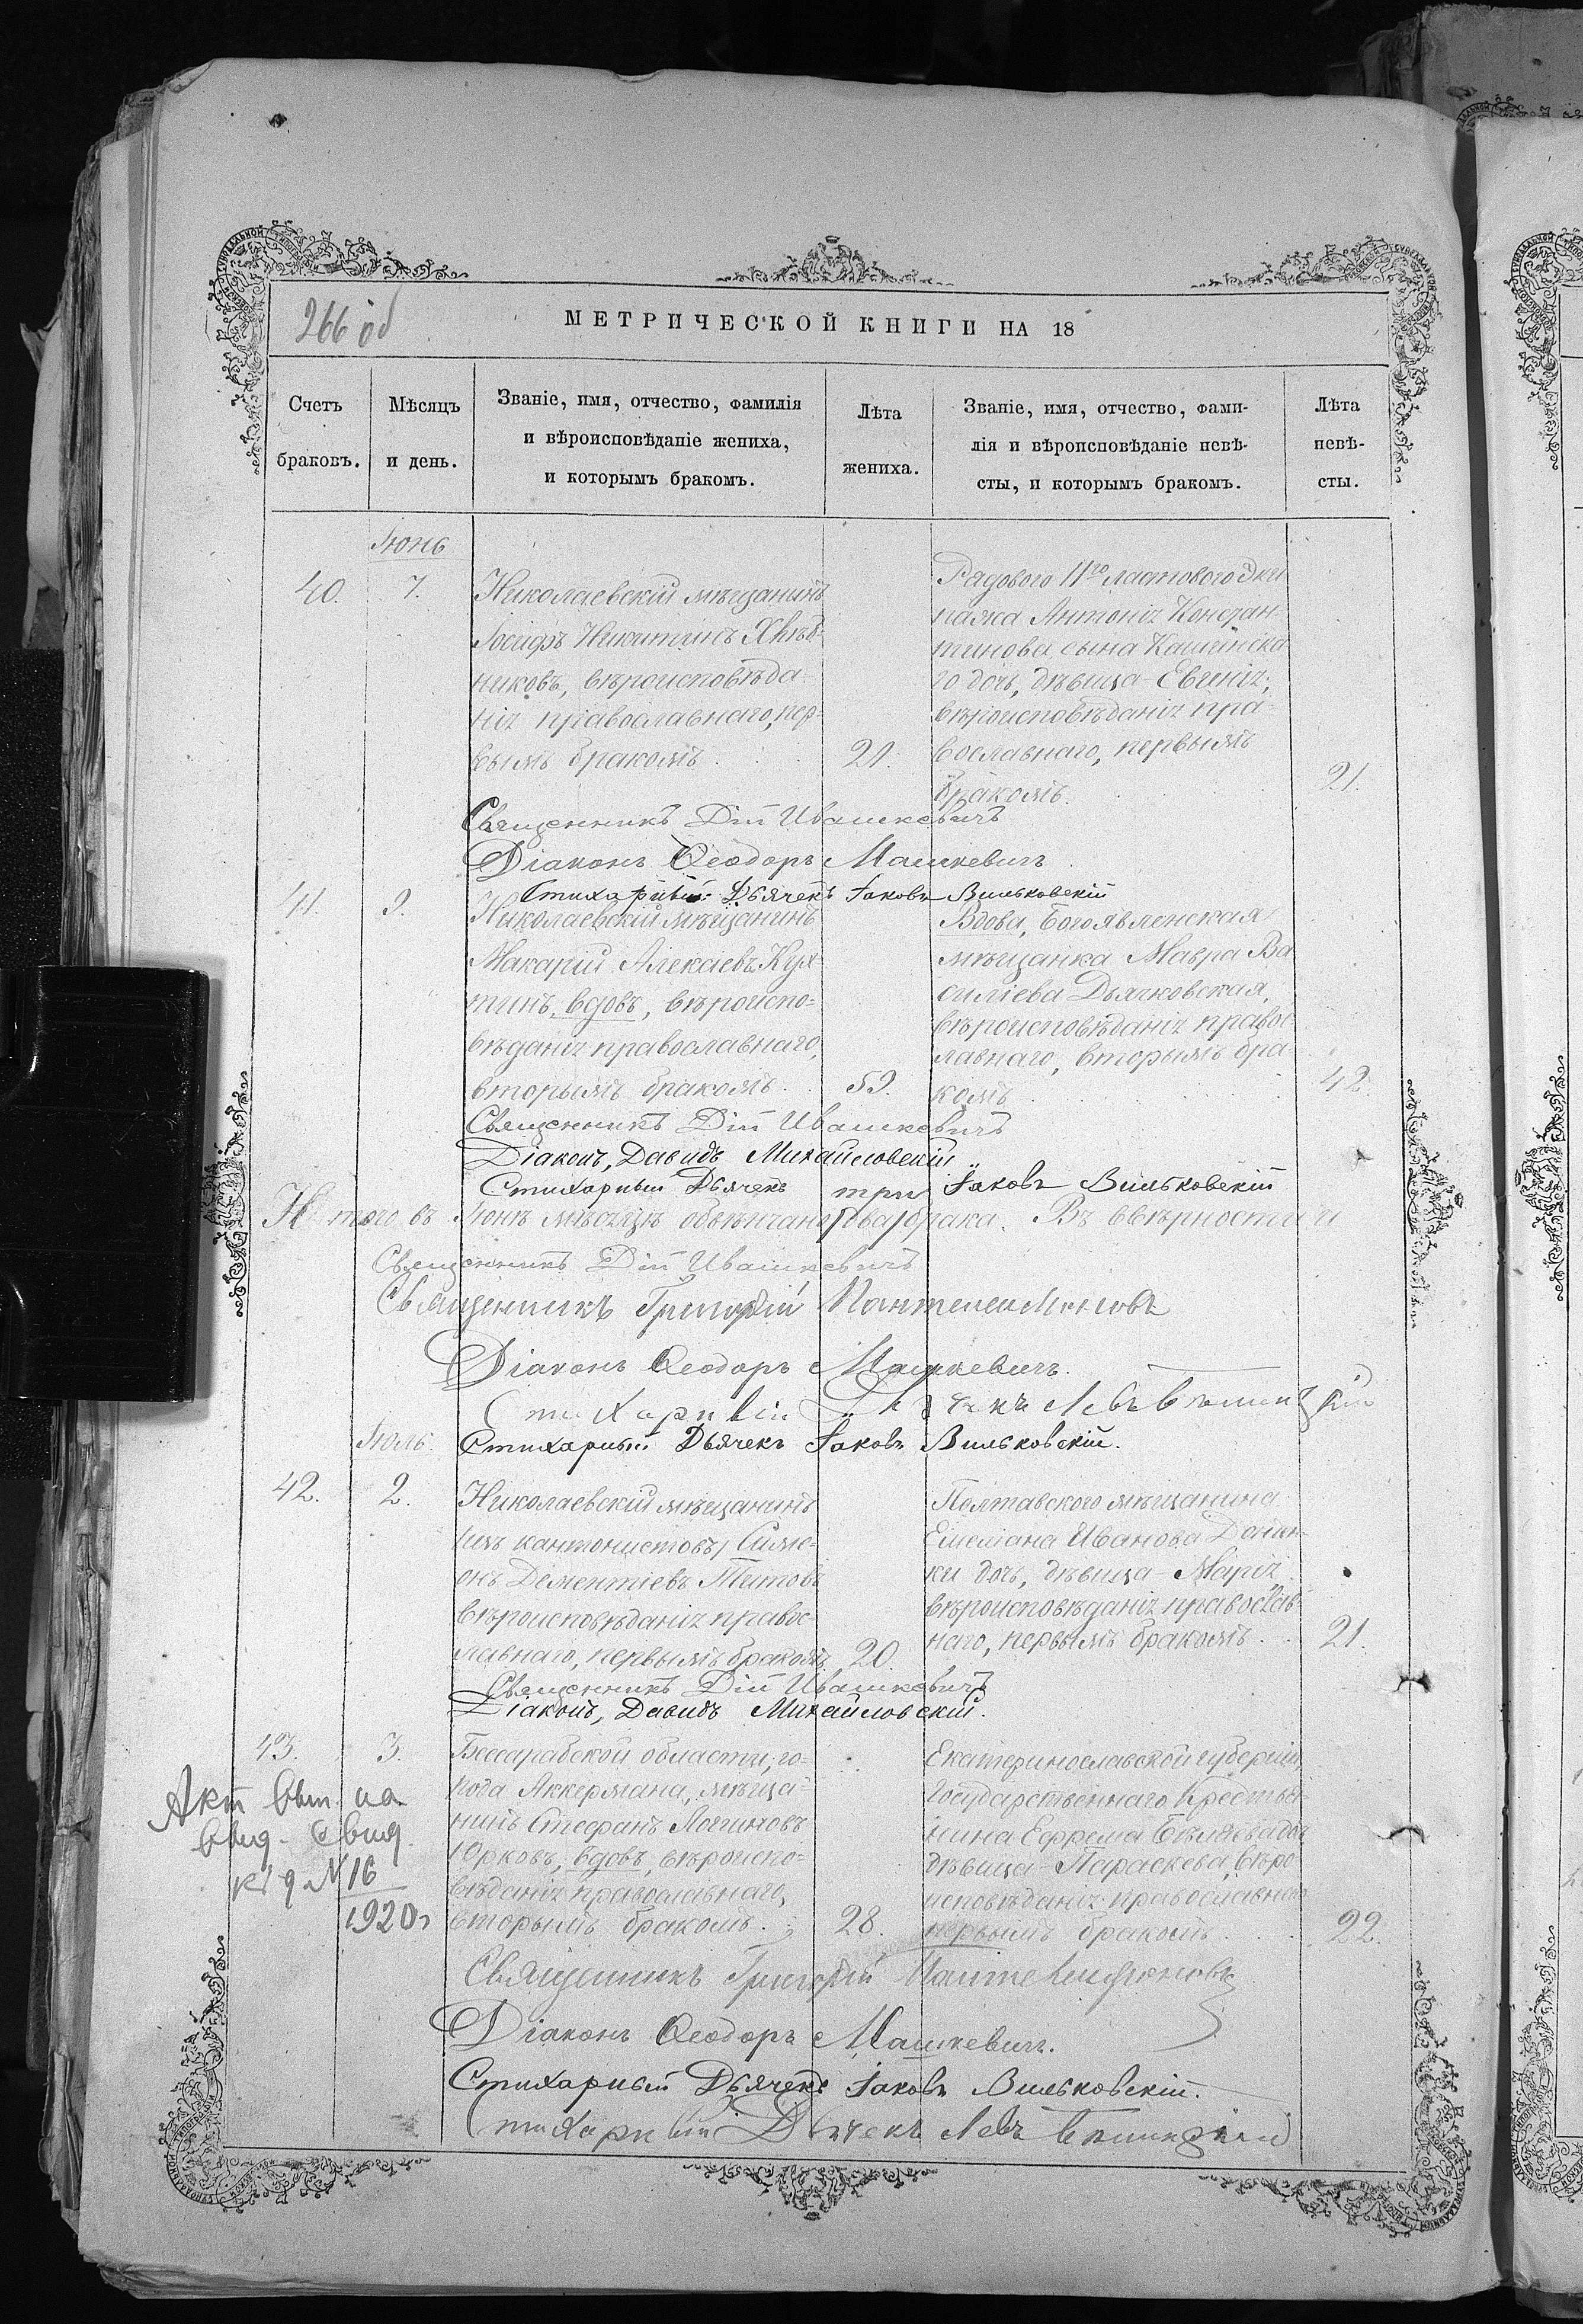 266 об
МЕТРИЧЕСКОЙ КНИГИ НА 18
Счетъ браковъ.
Мѣсяцъ и день.
Званіе, имя, отчество, фамилія
и вѣроисповѣданіе жениха,
и которымъ бракомъ.
Лѣта жениха.
Званіе, имя, отчество, фами-
лія и вѣроисповѣданіе невѣ-
сты, и которымъ бракомъ.
Лѣта невѣ-
сты.
Іюнь
40. 7.
Николаевскій мѣщанинъ
Іосифъ Никитинъ Хлѣб-
никовъ, вѣроисповѣда-
нія православнаго, пер-
вымъ бракомъ. 21.
Рядового 11го ластового Эки
пажа Антонія Констан-
тинова сына Кашинска
го дочь, дѣвица Евгенія,
вѣроисповѣданія пра-
вославнаго, первымъ
бракомъ. 21.
Священникъ Дій Ивашкевичъ
Діаконъ Ѳеодоръ Машкевичъ
Стихарный Дьячекъ Іаковъ Вильковскій
41. 9.
Николаевскій мѣщанинъ
Макарій Алексѣевъ
вдовъ, вѣроиспо-
вѣданія православнаго,
вторымъ бракомъ. 59.
Вдова, Богоявленская
мѣщанка Мавра Ва
силіева Дьячковская,
вѣроисповѣданія правос-
лавнаго, вторымъ бра-
комъ 42.
Священникъ Дій Ивашкевичъ
Діаконъ, Давидъ Михайловскій
Стихарный Дьячекъ Іаковъ Вильковскій
три
Итого въ Іюнѣ мѣсяцѣ обвѣнчано (два) брака. Въ вѣрности и
Священникъ Дій Ивашкевичъ
Священникъ Григорій Пантелеимоновъ
Діаконъ Ѳеодоръ Машкевичъ.
Стихарный Дьячекъ Левъ
Іюль. Стихарный Дьячекъ Іаковъ Вильковскій.
42. 2.
Николаевскій мѣщанинъ
(изъ кантонистовъ) Симе-
онъ Дементіевъ Титовъ
вѣроисповѣданія правос-
лавнаго, первымъ бракомъ. 20.
Полтавского мѣщанина
Емеліана Иванова
ки дочь, дѣвица Марія
вѣроисповѣданія православ-
наго, первымъ бракомъ. 21.
Священникъ Дій Ивашкевичъ
Діаконъ, Давидъ Михайловскій.
43. 3.
Бессарабской области, го-
рода Аккермана, мѣща-
нинъ Стефанъ Логиновъ
Юрковъ, вдовъ, вѣроиспо-
вѣданія православнаго,
вторымъ бракомъ. 28.
Екатеринославской губерніи,
Государственнаго Крестья-
нина Ефрема Бѣляева дочь
дѣвица Параскева, вѣро
исповѣданія православнаго
первымъ бракомъ. 22.
Акт выт. на
выд. свид.
к д № 16
1920 г
Священникъ Григорій Пантелеимоновъ
Діаконъ Ѳеодоръ Машкевичъ.
Стихарный Дьячекъ Іаковъ Вильковскій.
Стихарный Дьячекъ Левъ